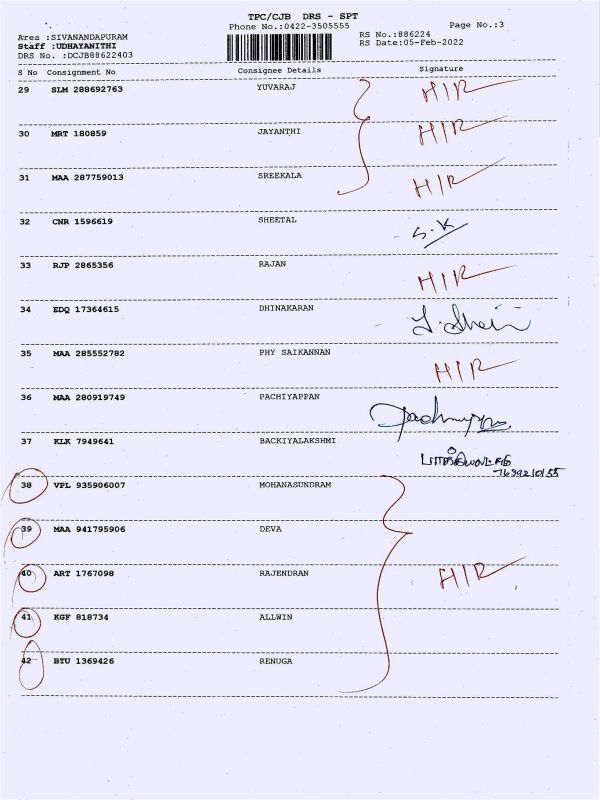 TPC/CJB DRS - SPT
Phone No.:0422-3505555
Page No.:3
Area :SIVANANDAPURAM
RS No.:886224
Staff :UDHAYANITHI
RS Date:05-Feb-2022
DRS No. :DCJB88622403
S No Consignment No Consignee Details Signature
29 SLM 288692763 YUVARAJ HIR
30 MRT 180859 JAYANTHI HIR
31 MAA 287759013 SREEKALA HIR
32 CNR 1596619 SHEETAL S.K
33 RJP 2865356 RAJAN HIR
34 EDQ 17364615 DHINAKARAN
35 MAA 285552782 PHY SAIKANNAN HIR
36 MAA 280919749 PACHIYAPPAN
37 KLK 7949641 BACKIYALAKSHMI
38 VPL 935906007 MOHANASUNDRAM
39 MAA 941795906 DEVA
40 ART 1767098 RAJENDRAN HIR
41 KGF 818734 ALLWIN
42 BTU 1369426 RENUGA